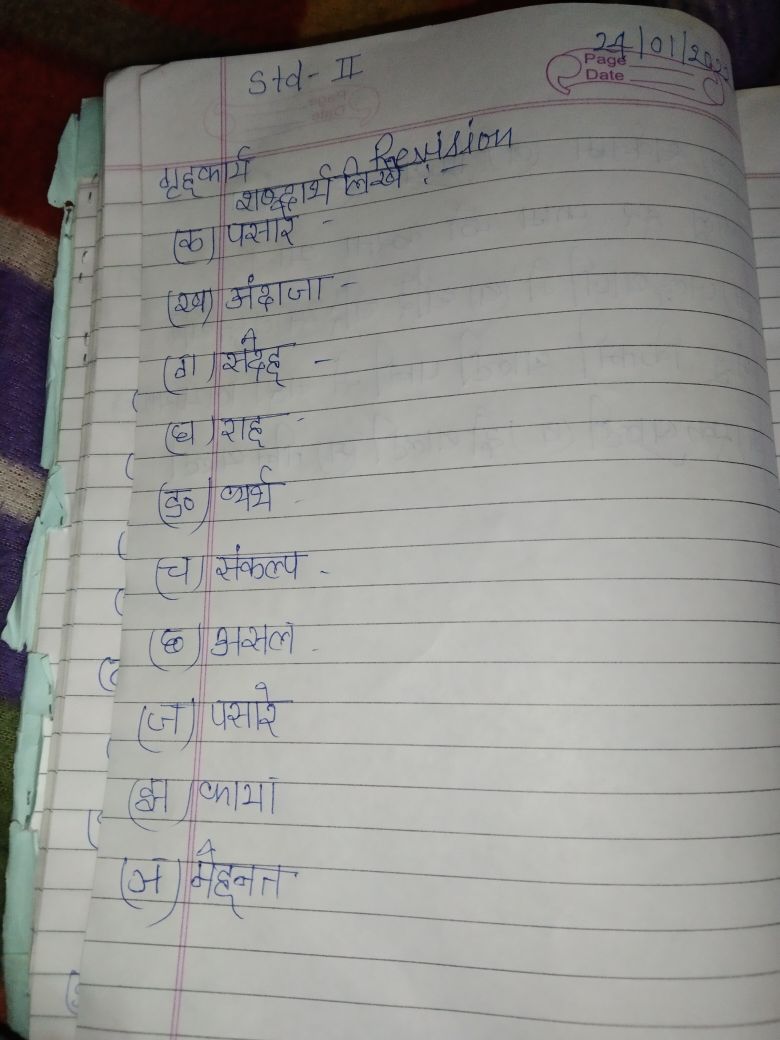 24/01/202
Page
Date
Std - II
Revision
गृहकार्य
शब्दार्थ लिखें :-
(क) पसारे -
(ख) अंदाजा -
(ग) संदेह -
(घ) राह -
(ङ) व्यर्थ -
(च) संकल्प -
(छ) असल -
(ज) पसारे
(झ) काया
(ञ) मेहनत